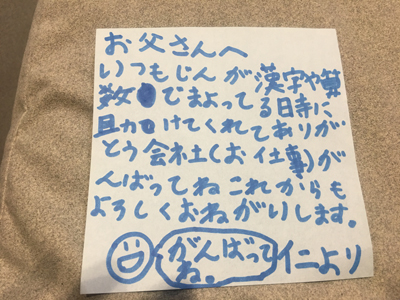 お父さんへ
いつもじんが漢字や算
数でまよってる時に
助けてくれてありが
とう会社(お仕事)が
んばってねこれからも
よろしくおねがりします。
がんばって
ね。
仁より